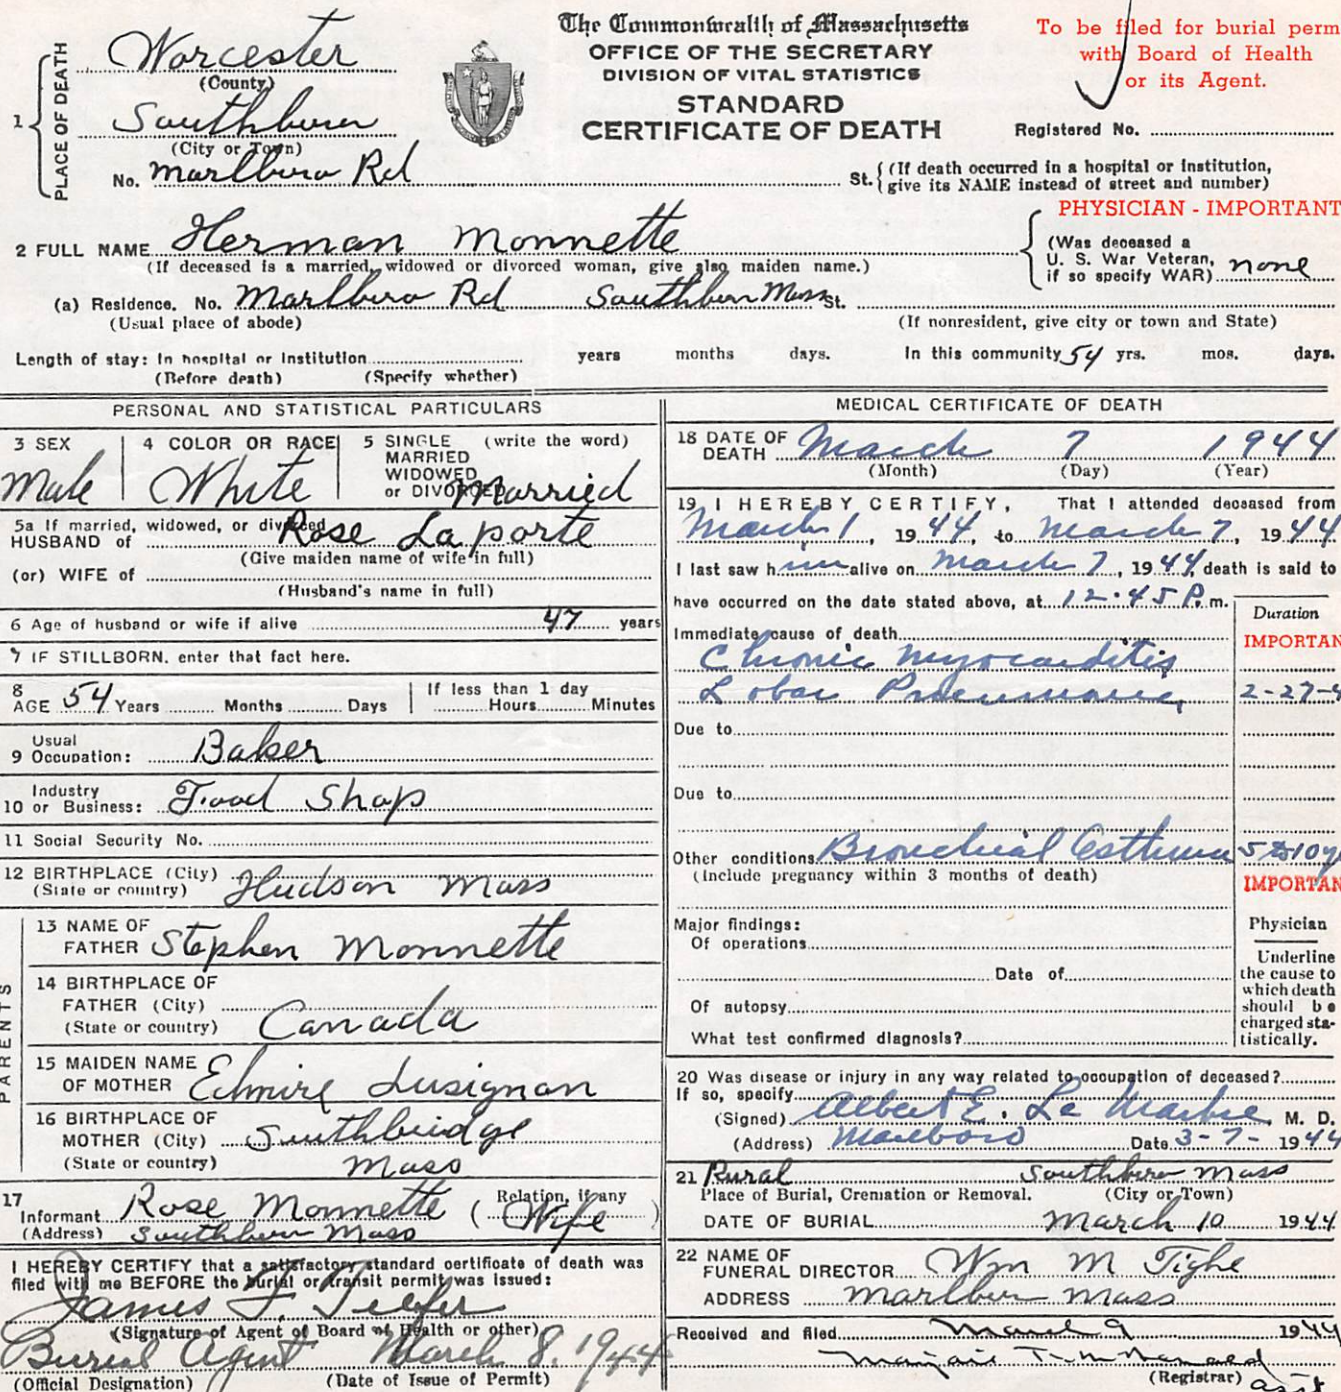 The Commonwealth of Massachusetts
OFFICE OF THE SECRETARY
DIVISION OF VITAL STATISTICS
STANDARD
CERTIFICATE OF DEATH
To be filed for burial perm
with Board of Health
or its Agent.
Registered No.
1 PLACE OF DEATH
Worcester
(County)
Southboro
(City or Town)
No. Marlboro Rd St. { (If death occurred in a hospital or institution,
give its NAME instead of street and number)
PHYSICIAN - IMPORTANT
2 FULL NAME Herman Monnette
(If deceased is a married, widowed or divorced woman, give also maiden name.)
(Was deceased a
U. S. War Veteran,
if so specify WAR) none
(a) Residence. No. Marlboro Rd Southboro Mass St.
(Usual place of abode) (If nonresident, give city or town and State)
Length of stay: In hospital or Institution years months days. In this community 54 yrs. mos. days.
(Before death) (Specify whether)
PERSONAL AND STATISTICAL PARTICULARS
3 SEX 4 COLOR OR RACE 5 SINGLE (write the word)
MARRIED
WIDOWED
or DIVORCED
Male White Married
5a If married, widowed, or divorced
HUSBAND of Rose Laporte
(Give maiden name of wife in full)
(or) WIFE of
(Husband's name in full)
6 Age of husband or wife if alive 47 years
7 IF STILLBORN. enter that fact here.
8 AGE 54 Years Months Days If less than 1 day
Hours Minutes
9 Usual Occupation: Baker
10 Industry or Business: Food Shop
11 Social Security No.
12 BIRTHPLACE (City)
(State or country) Hudson Mass
PARENTS
13 NAME OF
FATHER Stephen Monnette
14 BIRTHPLACE OF
FATHER (City)
(State or country) Canada
15 MAIDEN NAME
OF MOTHER Elmire Lusignan
16 BIRTHPLACE OF
MOTHER (City) Southbridge
(State or country) Mass
17 Informant Rose Monnette (Relation, if any Wife)
(Address) Southboro Mass
I HEREBY CERTIFY that a satisfactory standard certificate of death was
filed with me BEFORE the burial or transit permit was issued:
James F.
(Signature of Agent of Board of Health or other)
Burial Agent March 8, 1944
(Official Designation) (Date of Issue of Permit)
MEDICAL CERTIFICATE OF DEATH
18 DATE OF
DEATH March 7 1944
(Month) (Day) (Year)
19 I HEREBY CERTIFY, That I attended deceased from
March 1, 1944, to March 7, 1944
I last saw him alive on March 7, 1944, death is said to
have occurred on the date stated above, at 12.45 P. m.
Duration
IMPORTAN
Immediate cause of death
Chronic Myocarditis
Lobar Pneumonia 2-27-4
Due to
Due to
Other conditions Bronchial Asthma 5 to 10 y
(Include pregnancy within 3 months of death)
IMPORTAN
Major findings:
Of operations
Date of
Of autopsy
What test confirmed diagnosis?
Physician
Underline
the cause to
which death
should be
charged sta-
tistically.
20 Was disease or injury in any way related to occupation of deceased?
If so, specify
(Signed) Albert E. La Marbre M. D.
(Address) Marlboro Date 3-7- 1944
21 Rural Southboro Mass
Place of Burial, Cremation or Removal. (City or Town)
DATE OF BURIAL March 10 1944
22 NAME OF
FUNERAL DIRECTOR Wm M Tighe
ADDRESS Marlboro Mass
Received and filed March 9 1944
(Registrar) asst